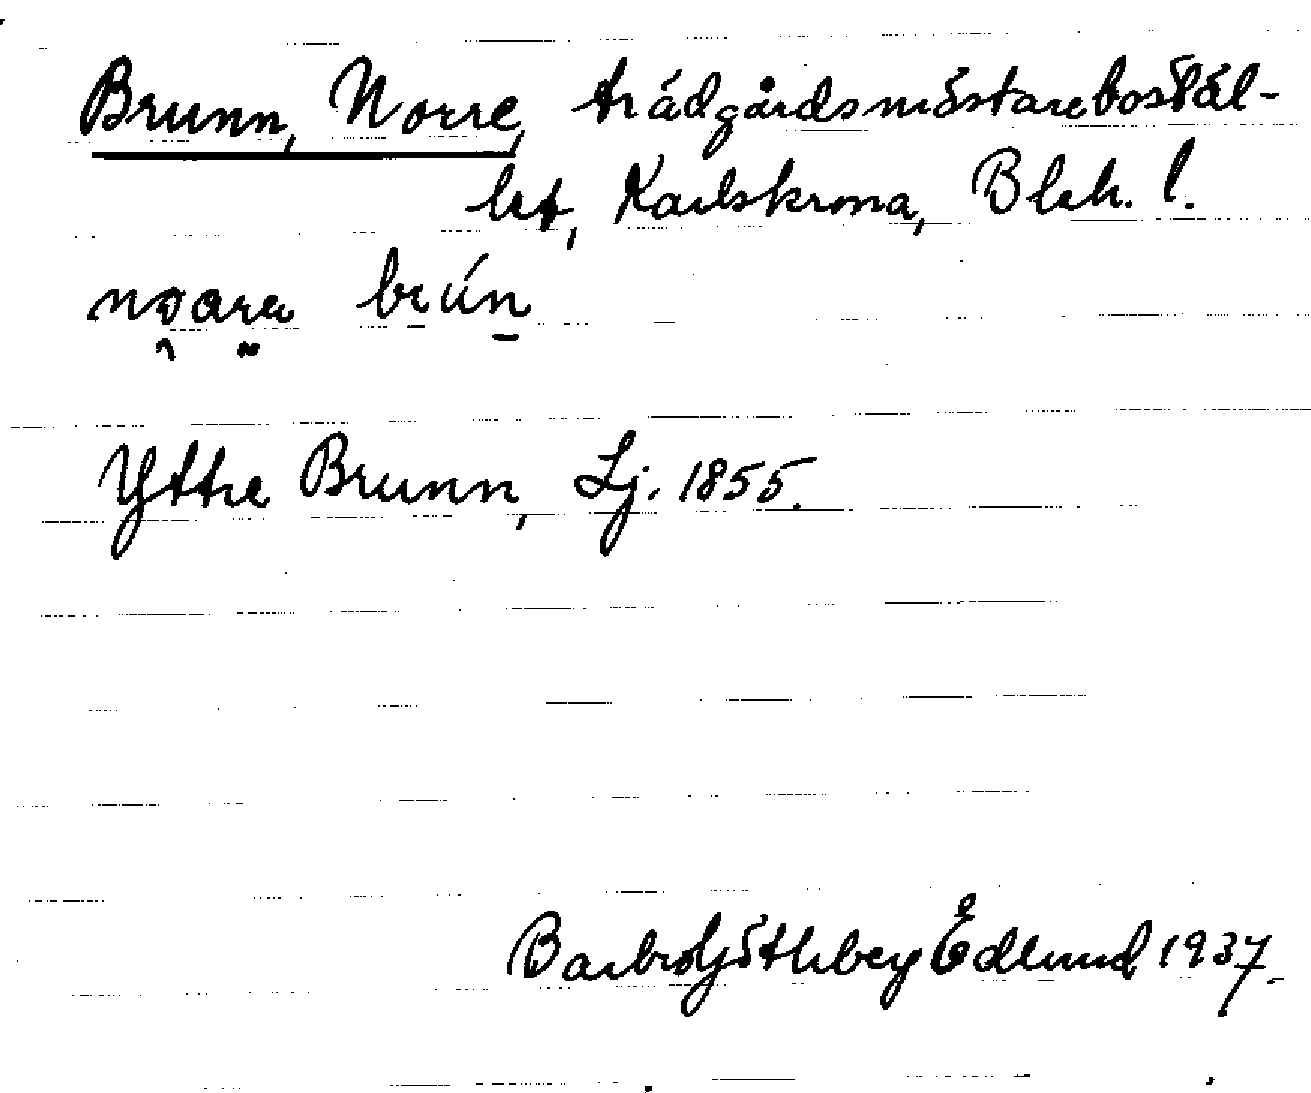 Brunn, Norre, trädgårdsmästarebostäl-
let, Karlskrona, Blek. l.
brún
Yttre Brunn, Lj. 1855.
Barbro Edlund 1937.